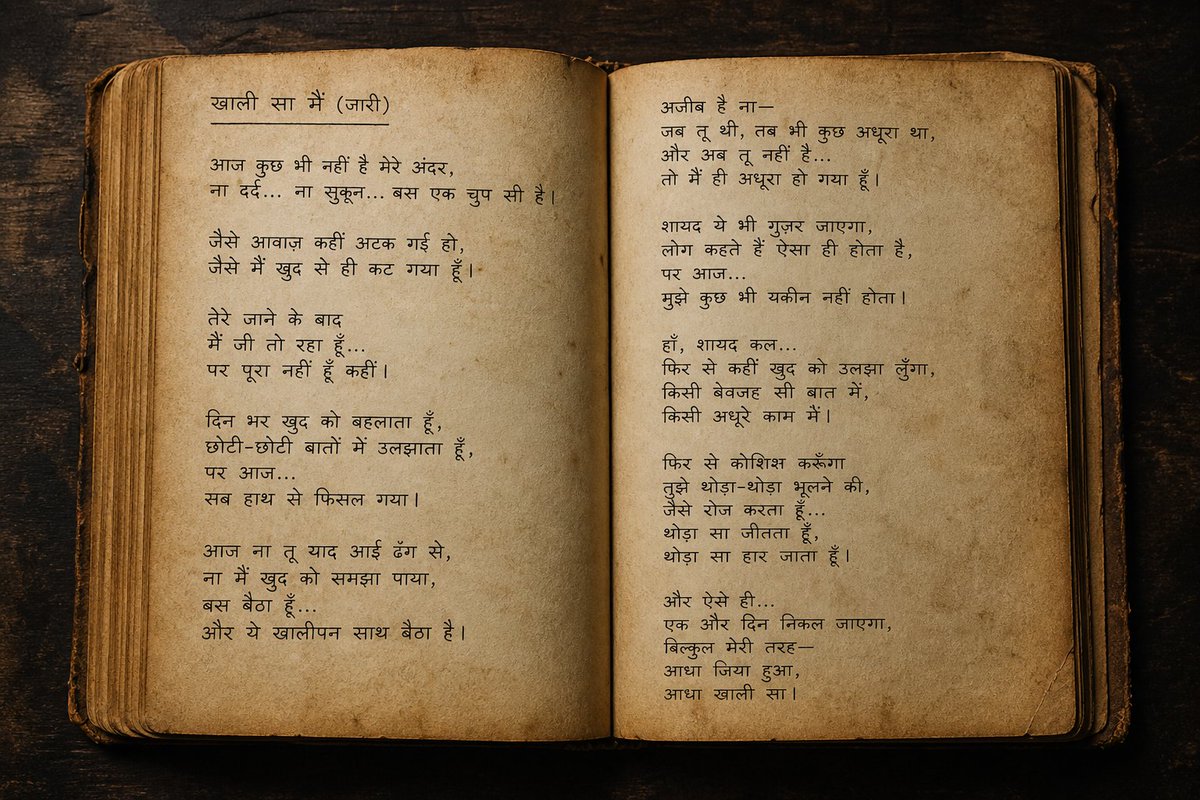 खाली सा मैं (जारी)
आज कुछ भी नहीं है मेरे अंदर,
ना दर्द... ना सुकून... बस एक चुप सी है।
जैसे आवाज़ कहीं अटक गई हो,
जैसे मैं खुद से ही कट गया हूँ।
तेरे जाने के बाद
मैं जी तो रहा हूँ...
पर पूरा नहीं हूँ कहीं।
दिन भर खुद को बहलाता हूँ,
छोटी-छोटी बातों में उलझाता हूँ,
पर आज...
सब हाथ से फिसल गया।
आज ना तू याद आई ढँग से,
ना मैं खुद को समझा पाया,
बस बैठा हूँ...
और ये खालीपन साथ बैठा है।
अजीब है ना—
जब तू थी, तब भी कुछ अधूरा था,
और अब तू नहीं है...
तो मैं ही अधूरा हो गया हूँ।
शायद ये भी गुज़र जाएगा,
लोग कहते हैं ऐसा ही होता है,
पर आज...
मुझे कुछ भी यकीन नहीं होता।
हाँ, शायद कल...
फिर से कहीं खुद को उलझा लुँगा,
किसी बेवजह सी बात में,
किसी अधूरे काम मैं।
फिर से कोशिश करूँगा
तुझे थोड़ा-थोड़ा भूलने की,
जैसे रोज करता हूँ...
थोड़ा सा जीतता हूँ,
थोड़ा सा हार जाता हूँ।
और ऐसे ही...
एक और दिन निकल जाएगा,
बिल्कुल मेरी तरह—
आधा जिया हुआ,
आधा खाली सा।